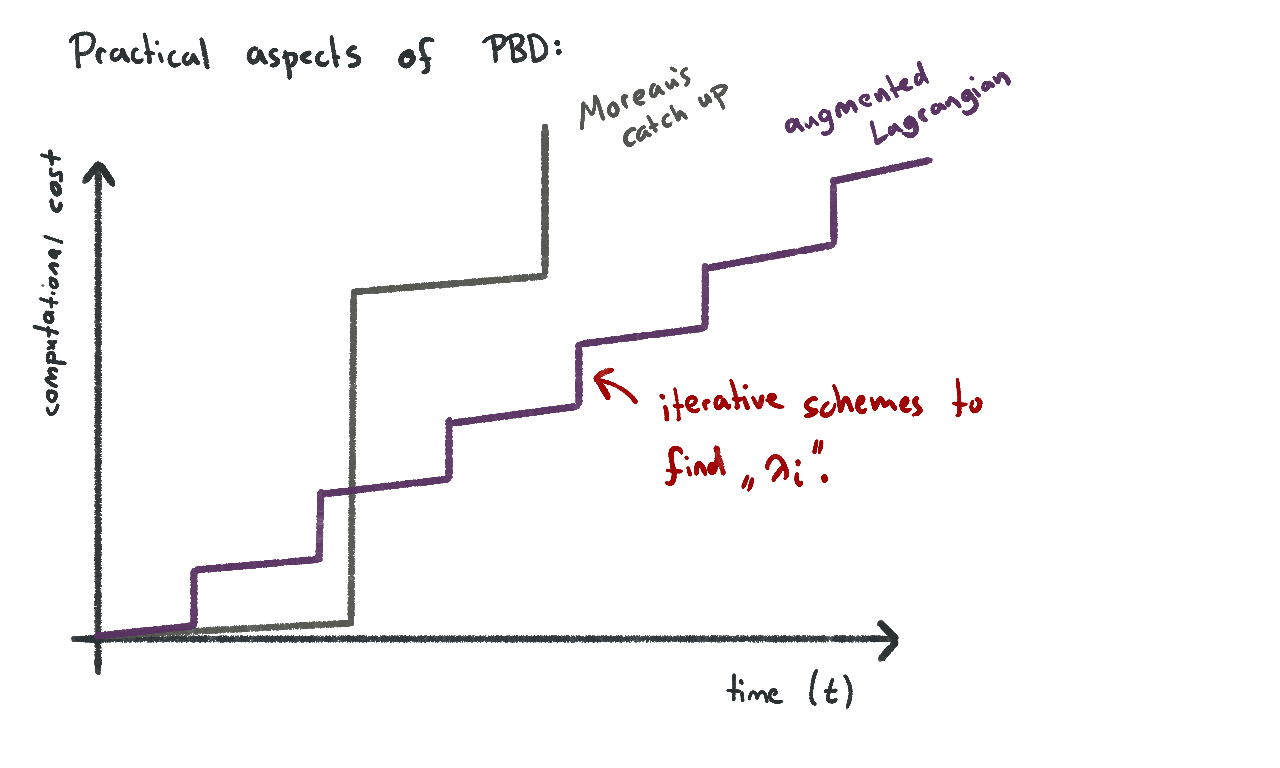 Practical aspects of PBD:
Moreau's
catch up
augmented
Lagrangian
computational cost
iterative schemes to
find „λi“.
time (t)